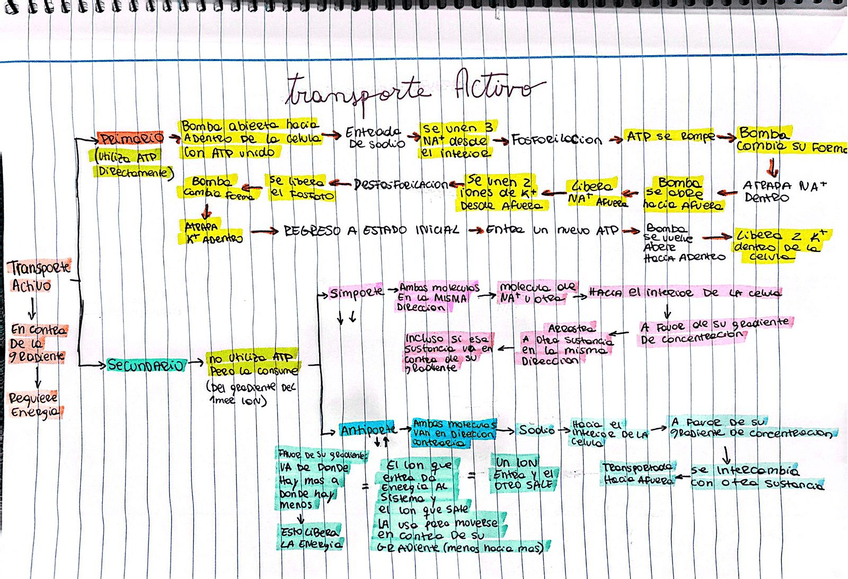 transporte Activo
Primario
(Utiliza ATP
Directamente)
Bomba abierta hacia
Adentro de la celula
con ATP unido
Entrada
de sodio
se unen 3
NA+ desde
el interior
Fosforilacion
ATP se rompe
Bomba
cambia su forma
Atrapa NA+
Dentro
Bomba
se abre
hacia Afuera
Libera
NA+ Afuera
Se unen 2
iones de K+
Desde Afuera
Desfosforilacion
Se libera
el fosfato
Bomba
cambia forma
Atrapa
K+ Adentro
Regreso a estado inicial
Entra un nuevo ATP
Bomba
se vuelve
Abrir
Hacia Adentro
Libera 2 K+
dentro de la
celula
Transporte
Activo
En contra
De la
gradiente
Requiere
Energia
Secundario
no utiliza ATP
Pero la consume
(Del gradiente del
1mer ion)
Simporte
Ambas moleculas
En la misma
Direccion
molecula de
NA+ u otra
Hacia el interior de la celula
A favor de su gradiente
de concentracion
Arrastra
A otra sustancia
en la misma
Direccion
Incluso si esa
sustancia va en
contra de su
gradiente
Antiporte
Ambas moleculas
van en Direccion
contraria
Sodio
Hacia el
interior de la
celula
A favor de su
gradiente de concentracion
se intercambia
con otra sustancia
Transportada
Hacia afuera
un ion
entra y el
otro sale
=
El ion que
entra da
energia al
sistema y
el ion que sale
la usa para moverse
en contra de su
gradiente (menos hacia mas)
=
Favor de su gradiente
va de donde
hay mas a
donde hay
menos
Esto libera
la energia